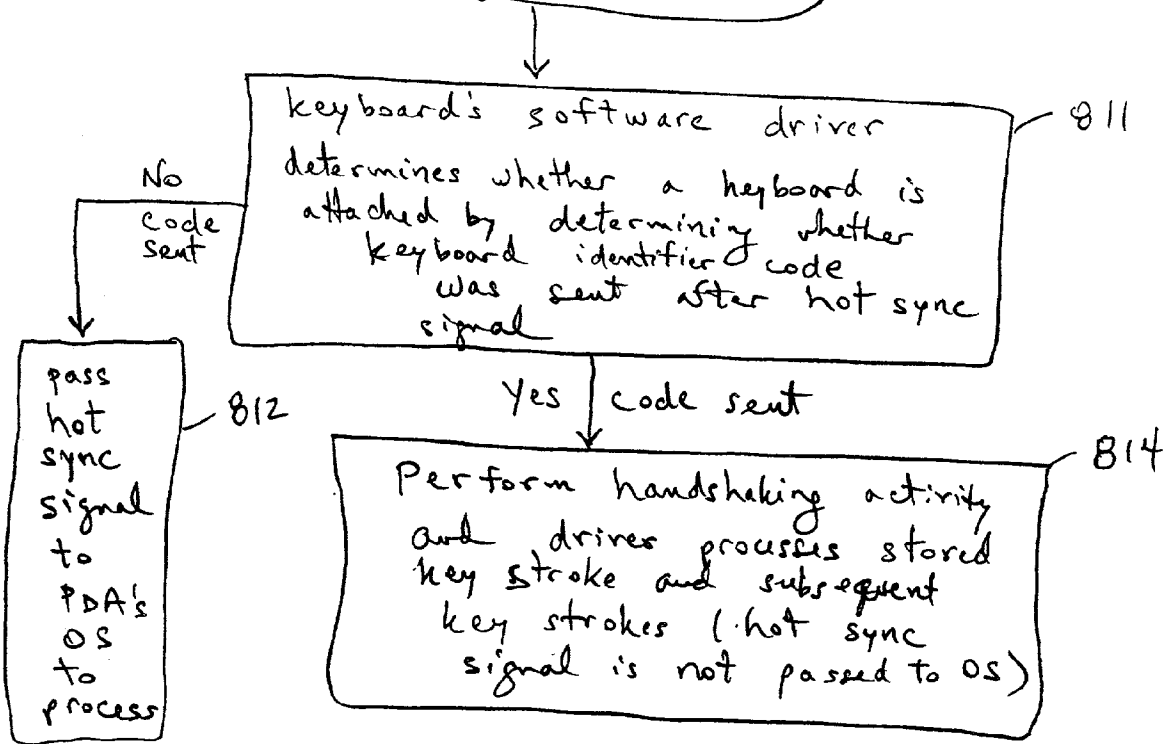 keyboard's software driver
determines whether a keyboard is
attached by determining whether
keyboard identifier code
was sent after hot sync
signal
811
No
code
sent
pass
hot
sync
signal
to
PDA's
OS
to
process
812
Yes code sent
Perform handshaking activity
and driver processes stored
key stroke and subsequent
key strokes (hot sync
signal is not passed to OS)
814